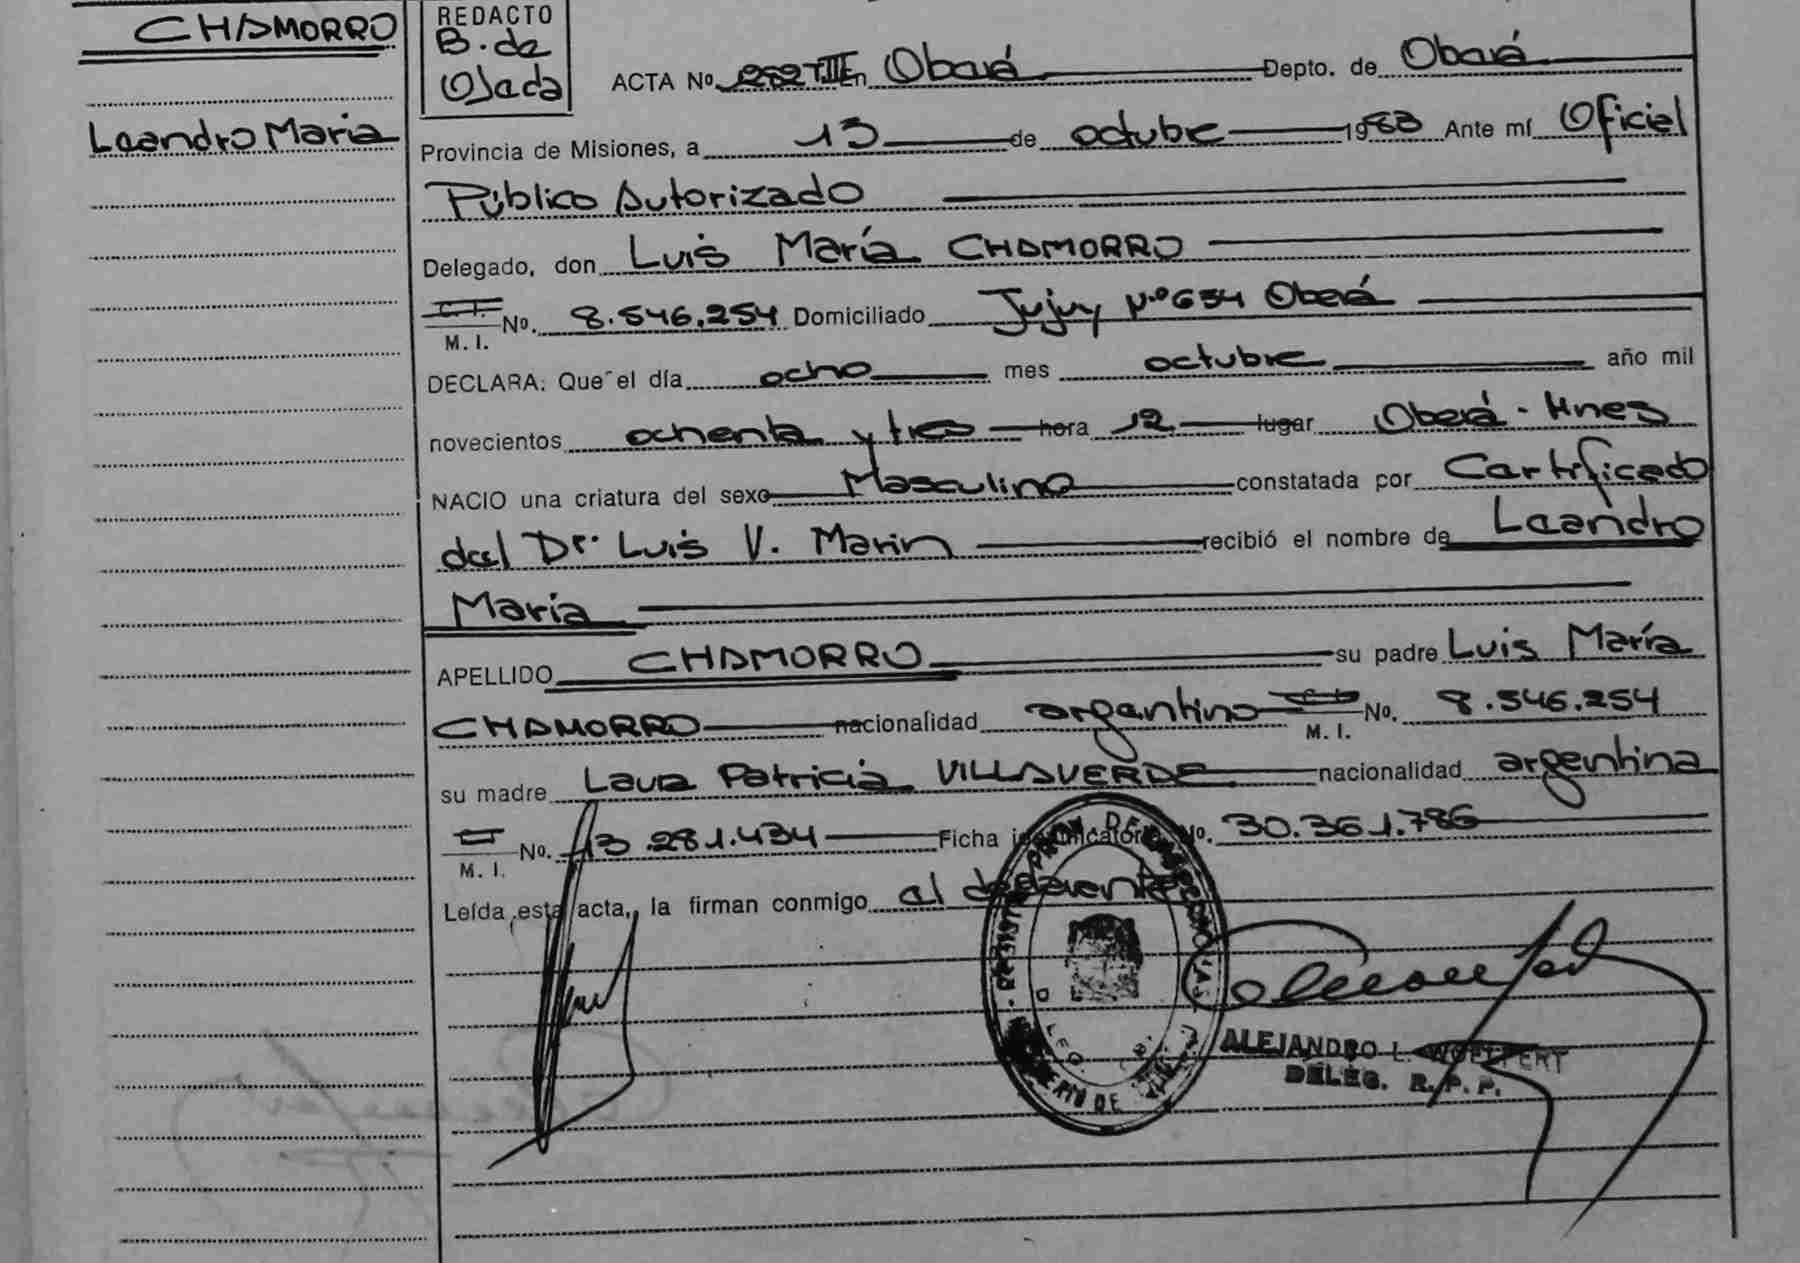 CHAMORRO
Leandro Maria
REDACTO
B. de
Ojeda
ACTA No. 282 T.III En Oberá Depto. de Oberá
Provincia de Misiones, a 13 de octubre 1983 Ante mí Oficial
Público Autorizado
Delegado, don Luis María CHAMORRO
C.I.
M. I. No. 8.546.254 Domiciliado Jujuy Nº 634 Oberá
DECLARA: Que el día ocho mes octubre año mil
novecientos ochenta y tres hora 12 lugar Oberá - Mnes
NACIO una criatura del sexo Masculino constatada por Certificado
del Dr. Luis V. Marin recibió el nombre de Leandro
María
APELLIDO CHAMORRO su padre Luis María
CHAMORRO nacionalidad argentino M. I. No. 8.546.254
su madre Laura Patricia VILLAVERDE nacionalidad argentina
M. I. No. 13.281.434 Ficha identificatoria No. 30.361.786
Leída esta acta, la firman conmigo el declarante
ALEJANDRO L.
DELEG. R. P. P.